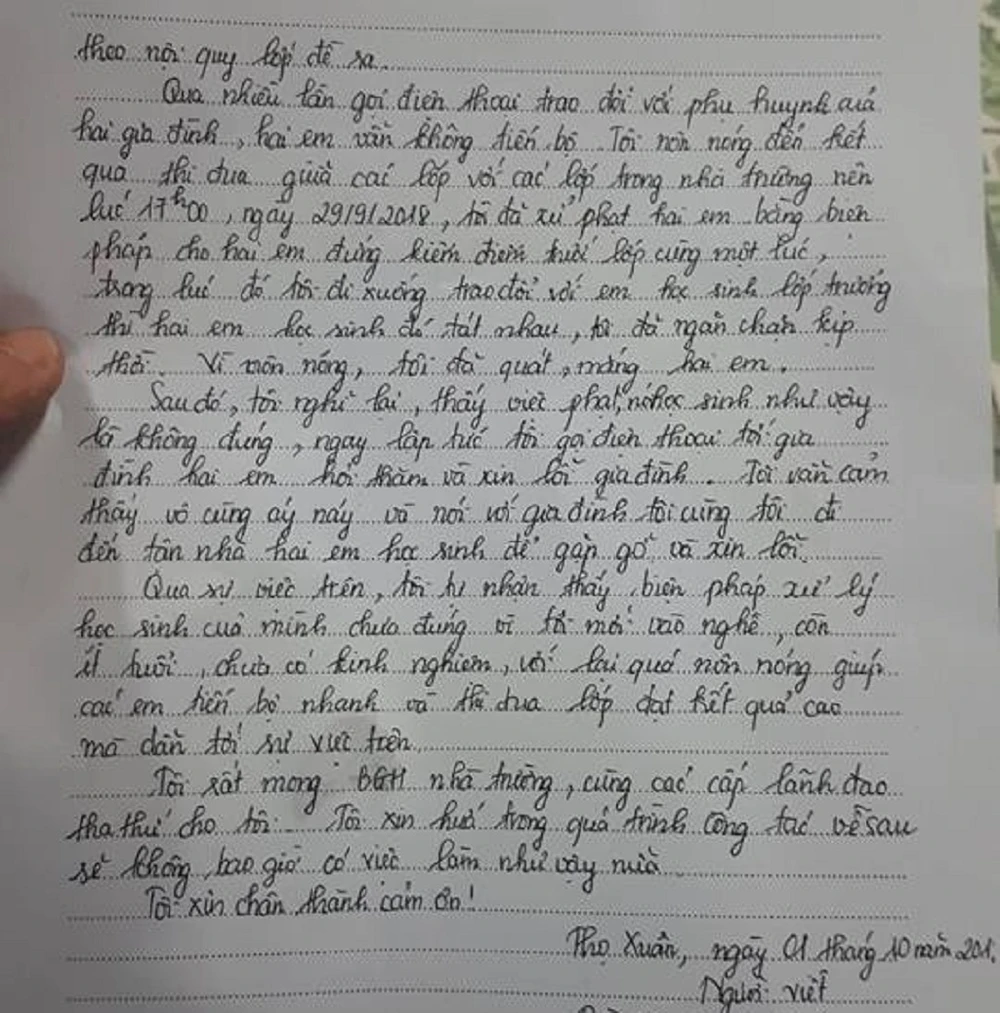 theo nội quy lớp đề ra.
Qua nhiều lần gọi điện thoại trao đổi với phụ huynh của
hai gia đình, hai em vẫn không tiến bộ. Tôi nôn nóng đến kết
quả thi đua giữa các lớp với các lớp trong nhà trường nên
lúc 17h00, ngày 29/9/2018, tôi đã xử phạt hai em bằng biện
pháp cho hai em đứng kiểm điểm trước lớp cùng một lúc,
trong lúc đó tôi đi xuống trao đổi với em học sinh lớp trưởng
thì hai em học sinh đó tát nhau, tôi đã ngăn chặn kịp
thời. Vì nôn nóng, tôi đã quát, mắng hai em.
Sau đó, tôi nghĩ lại, thấy việc phạt, học sinh như vậy
là không đúng, ngay lập tức tôi gọi điện thoại tới gia
đình hai em hỏi thăm và xin lỗi gia đình. Tôi vẫn cảm
thấy vô cùng áy náy và nói với gia đình tôi cùng tôi đi
đến tận nhà hai em học sinh để gặp gỡ và xin lỗi.
Qua sự việc trên, tôi tự nhận thấy biện pháp xử lý
học sinh của mình chưa đúng vì tôi mới vào nghề, còn
ít tuổi, chưa có kinh nghiệm, với lại quá nôn nóng giúp
các em tiến bộ nhanh và thi đua lớp đạt kết quả cao
mà dẫn tới sự việc trên.
Tôi rất mong BGH nhà trường, cùng các cấp lãnh đạo
tha thứ cho tôi. Tôi xin hứa trong quá trình công tác về sau
sẽ không bao giờ có việc làm như vậy nữa.
Tôi xin chân thành cảm ơn!
Thọ Xuân, ngày 01 tháng 10 năm 201
Người viết